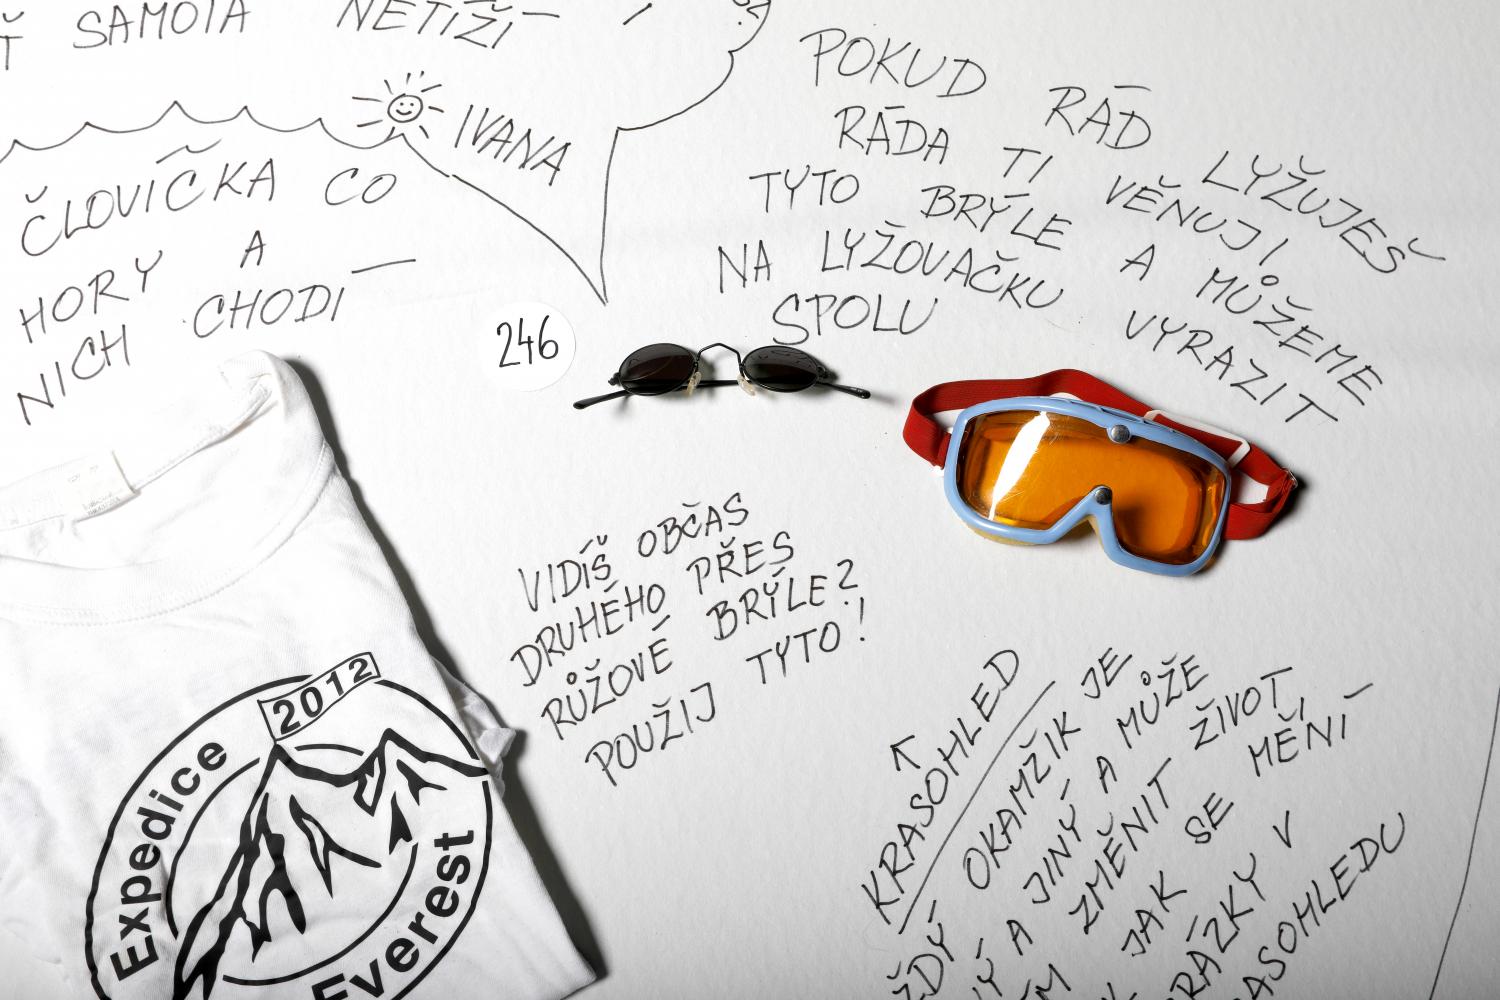 SAMOTA NETÍŽÍ
IVANA
ČLOVÍČKA CO
HORY A
NICH CHODÍ
POKUD RÁD LYŽUJEŠ
RÁDA TI VĚNUJI
TYTO BRÝLE A MŮŽEME
NA LYŽOVAČKU VYRAZIT
SPOLU
246
VIDÍŠ OBČAS
DRUHÉHO PŘES
RŮŽOVÉ BRÝLE?
POUŽIJ TYTO!
2012
Expedice
Everest
KRASOHLED
ŽDÝ OKAMŽIK JE
NÝ A JINÝ A MŮŽE
ÉM ZMĚNIT ŽIVOT,
JAK SE MĚNÍ
RÁZKY V
ASOHLEDU